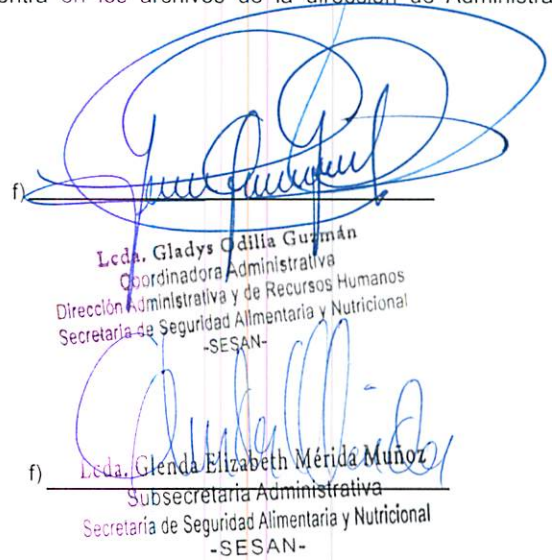 entra en los archivos de la dirección de Administra
f)
Lcda. Gladys Odilia Guzmán
Coordinadora Administrativa
Dirección Administrativa y de Recursos Humanos
Secretaria de Seguridad Alimentaria y Nutricional
-SESAN-
f) Lcda. Glenda Elizabeth Mérida Muñoz
Subsecretaria Administrativa
Secretaría de Seguridad Alimentaria y Nutricional
-SESAN-